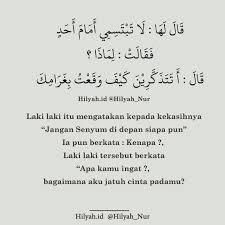 قَالَ لَهَا : لَا تَبْتَسِمِي أَمَامَ أَحَدٍ
فَقَالَتْ : لِمَاذَا ؟
قَالَ : أَ تَتَذَكَّرِيْنَ كَيْفَ وَقَعْتُ بِغَرَامِكِ
Hilyah.id @Hilyah_Nur
Laki laki itu mengatakan kepada kekasihnya
“Jangan Senyum di depan siapa pun”
Ia pun berkata : Kenapa ?,
Laki laki tersebut berkata
“Apa kamu ingat ?,
bagaimana aku jatuh cinta padamu?
Hilyah.id @Hilyah_Nur